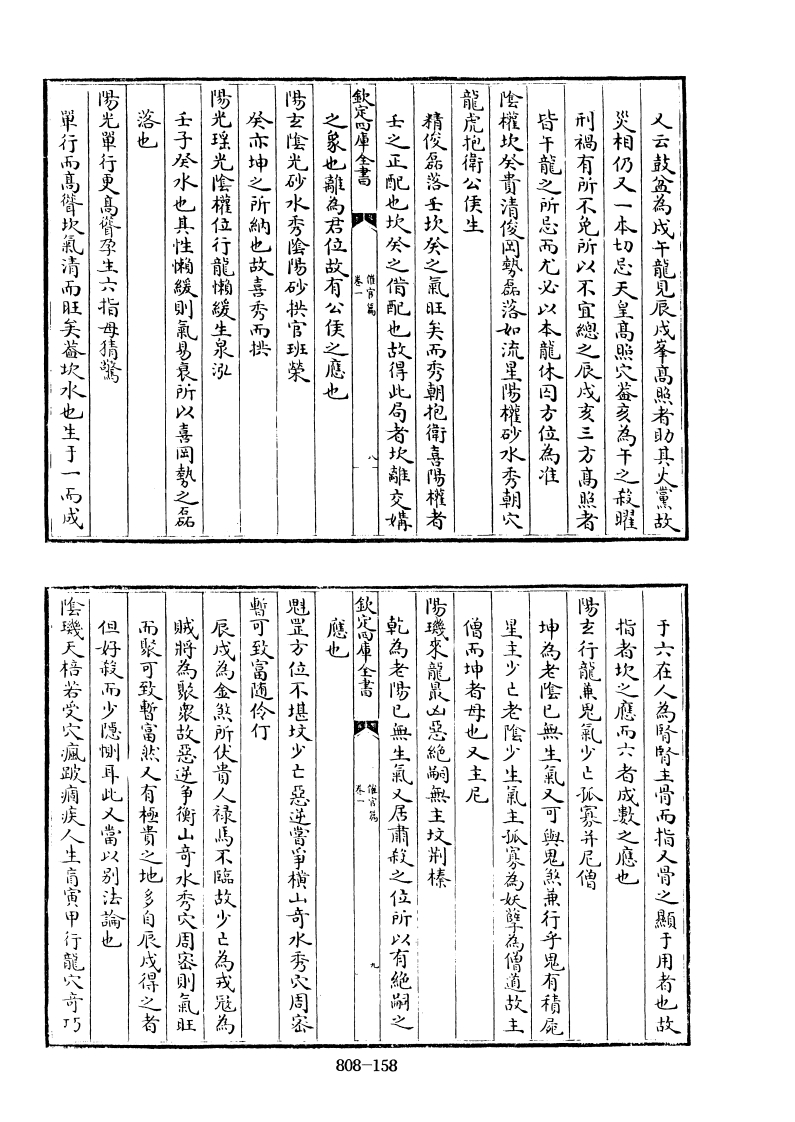 又云鼓盆為戌午龍見辰戌峯高照者助其火黨故
災相仍又一本切忌天皇高照穴葢亥為午之殺曜
刑禍有所不免所以不宜總之辰戌亥三方高照者
皆午龍之所忌而尤必以本龍休囚方位為准
陰權坎癸貴清俊岡勢磊落如流星陽權砂水秀朝穴
龍虎抱衛公侯生
精俊磊落壬坎癸之氣旺矣而秀朝抱衛喜陽權者
壬之正配也坎癸之借配也故得此局者坎離交媾
欽定四庫全書
催官篇
卷一
八
之象也離為君位故有公侯之應也
陽玄陰光砂水秀陰陽砂拱官班榮
癸亦坤之所納也故喜秀而拱
陽光瑶光陰權位行龍懶緩生泉泓
壬子癸水也其性懶緩則氣易衰所以喜岡勢之磊
落也
陽光單行更高聳孕生六指母猜驚
單行而高聳坎氣清而旺矣葢坎水也生于一而成
于六在人為腎腎主骨而指又骨之顯于用者也故
指者坎之應而六者成數之應也
陽玄行龍兼鬼氣少亡孤寡并尼僧
坤為老陰已無生氣又可與鬼煞兼行乎鬼有積屍
星主少亡老陰少生氣主孤寡為妖孽為僧道故主
僧而坤者母也又主尼
陽璣來龍最凶惡絶嗣無主墳荆榛
乾為老陽已無生氣又居肅殺之位所以有絶嗣之
欽定四庫全書
催官篇
卷一
九
應也
魁罡方位不堪墳少亡惡逆嘗爭橫山奇水秀穴周宻
暫可致富随伶仃
辰戌為金煞所伏貴人禄馬不臨故少亡為戎寇為
賊將為聚衆故惡逆争衡山奇水秀穴周宻則氣旺
而聚可致暫富然又有極貴之地多自辰戌得之者
但好殺而少隱惻耳此又當以别法論也
陰璣天棓若受穴瘋跛痼疾人生育寅甲行龍穴奇巧
808-158